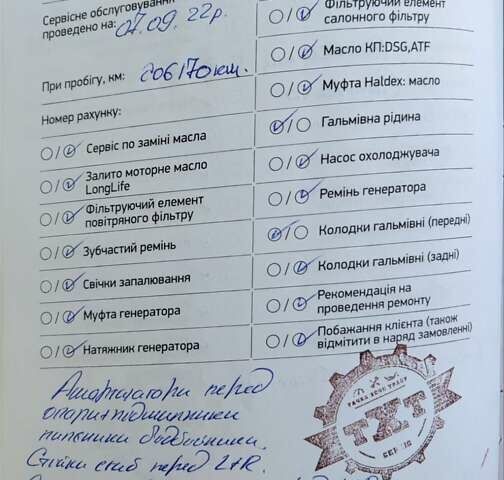 Сервісне обслуговування
проведено на: 07.09.22р.
При пробігу, км: 206170км.
Номер рахунку:
Сервіс по заміні масла
Залито моторне масло
LongLife
Фільтруючий елемент
повітряного фільтру
Зубчастий ремінь
Свічки запалювання
Муфта генератора
Натяжник генератора
Фільтруючий елемент
салонного фільтру
Масло КП:DSG,ATF
Муфта Haldex: масло
Гальмівна рідина
Насос охолоджувача
Ремінь генератора
Колодки гальмівні (передні)
Колодки гальмівні (задні)
Рекомендація на
проведення ремонту
Побажання клієнта (також
відмітити в наряд замовленні)
Амортизатори перед
опори+підшипники
пильники відбойники.
Стійки стаб перед L+R.
ТХТ
СЕРВІС